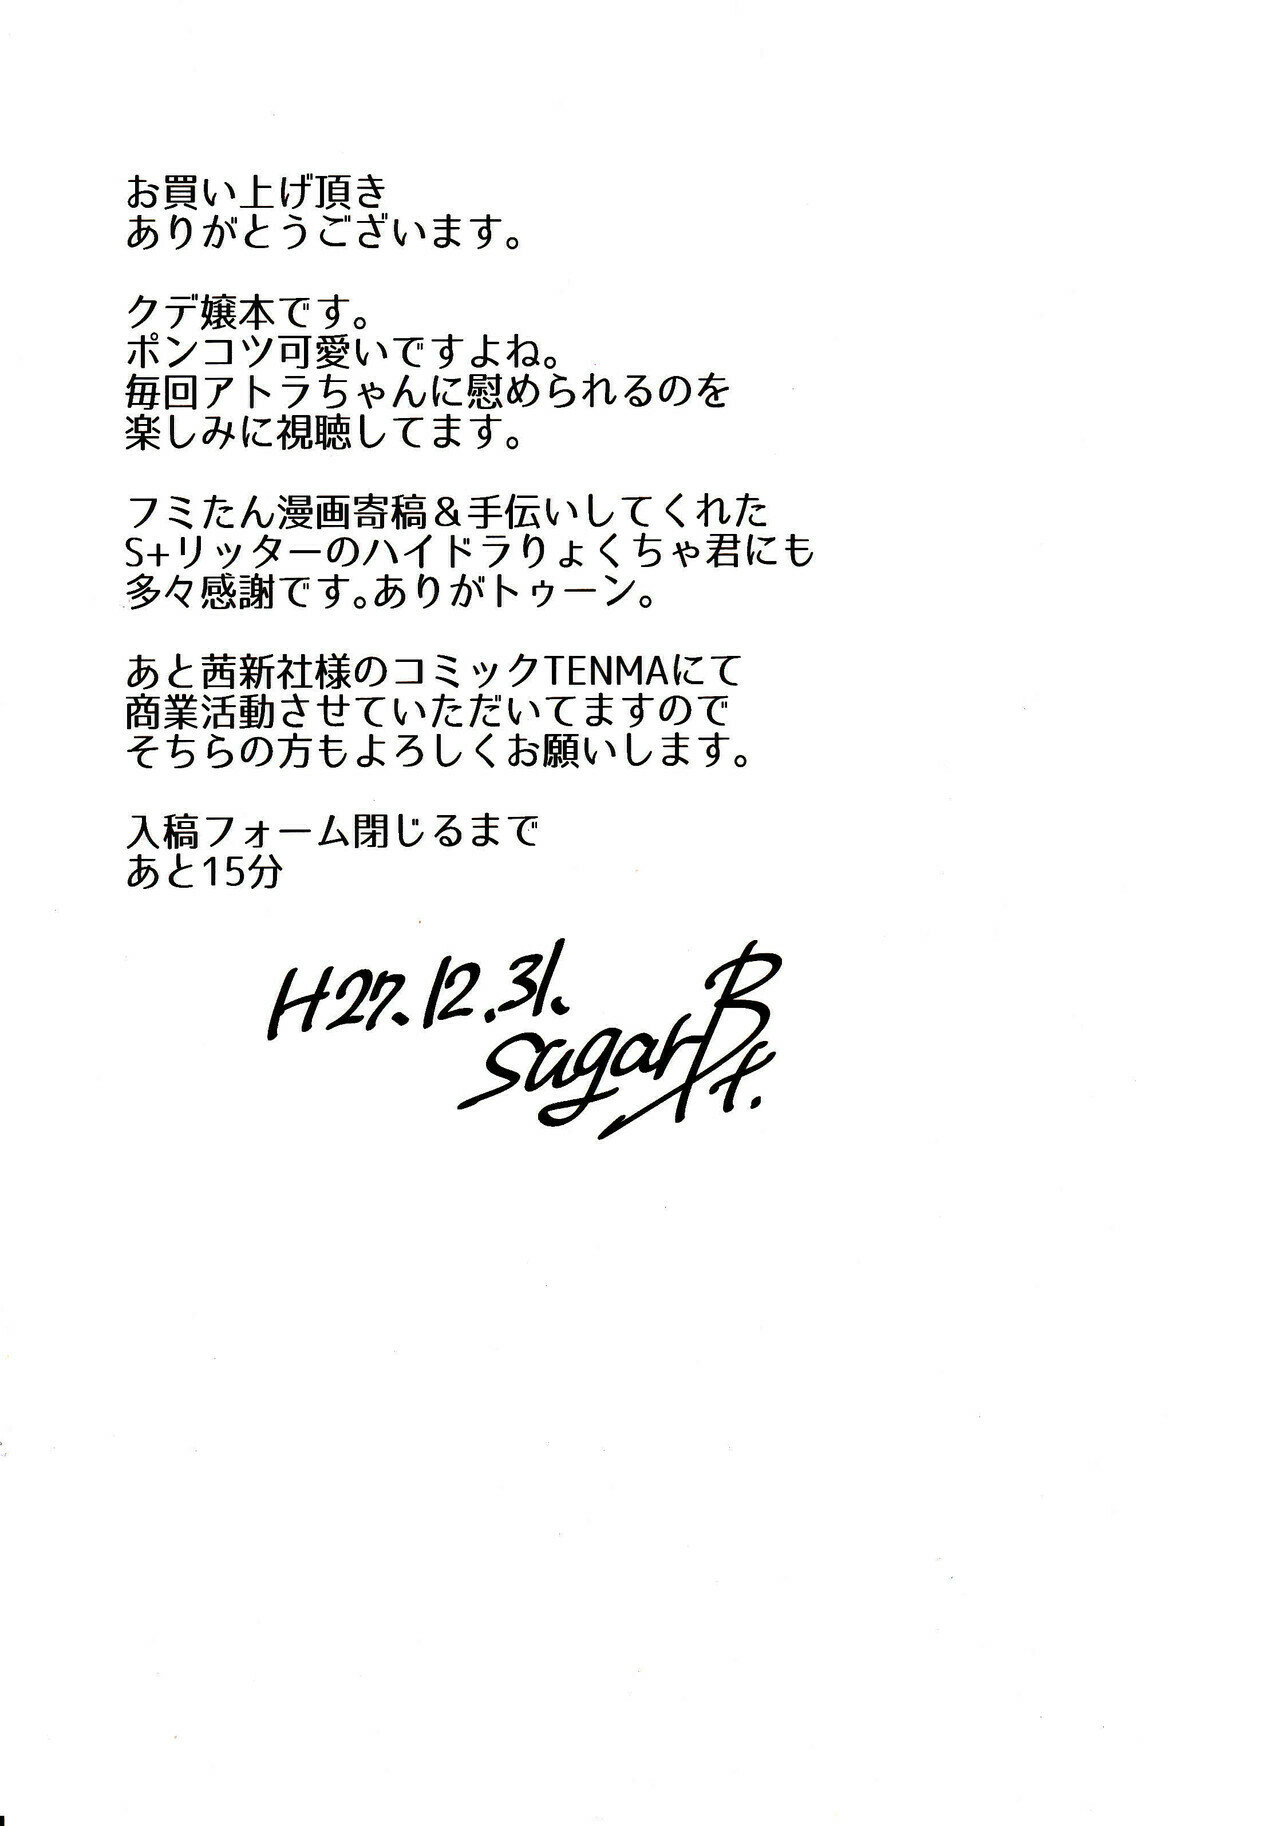 お買い上げ頂き
ありがとうございます。
クデ嬢本です。
ポンコツ可愛いですよね。
毎回アトラちゃんに慰められるのを
楽しみに視聴してます。
フミたん漫画寄稿＆手伝いしてくれた
S+リッターのハイドラりょくちゃ君にも
多々感謝です。ありがトゥーン。
あと茜新社様のコミックTENMAにて
商業活動させていただいてますので
そちらの方もよろしくお願いします。
入稿フォーム閉じるまで
あと15分
H27.12.31.
sugar